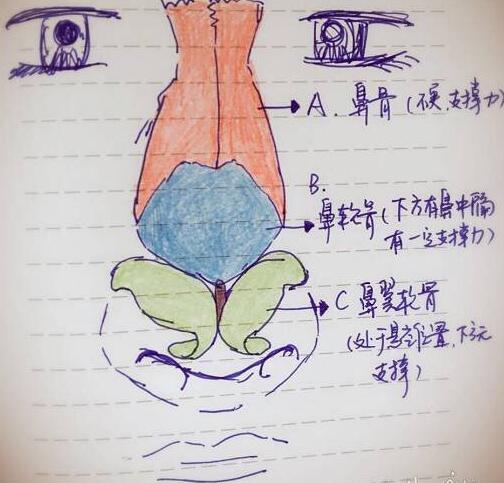 A. 鼻骨（硬,支撑力）
B.
鼻软骨（下方有鼻中隔
有一定支撑力）
C 鼻翼软骨
（处于悬空位置,下无
支撑）